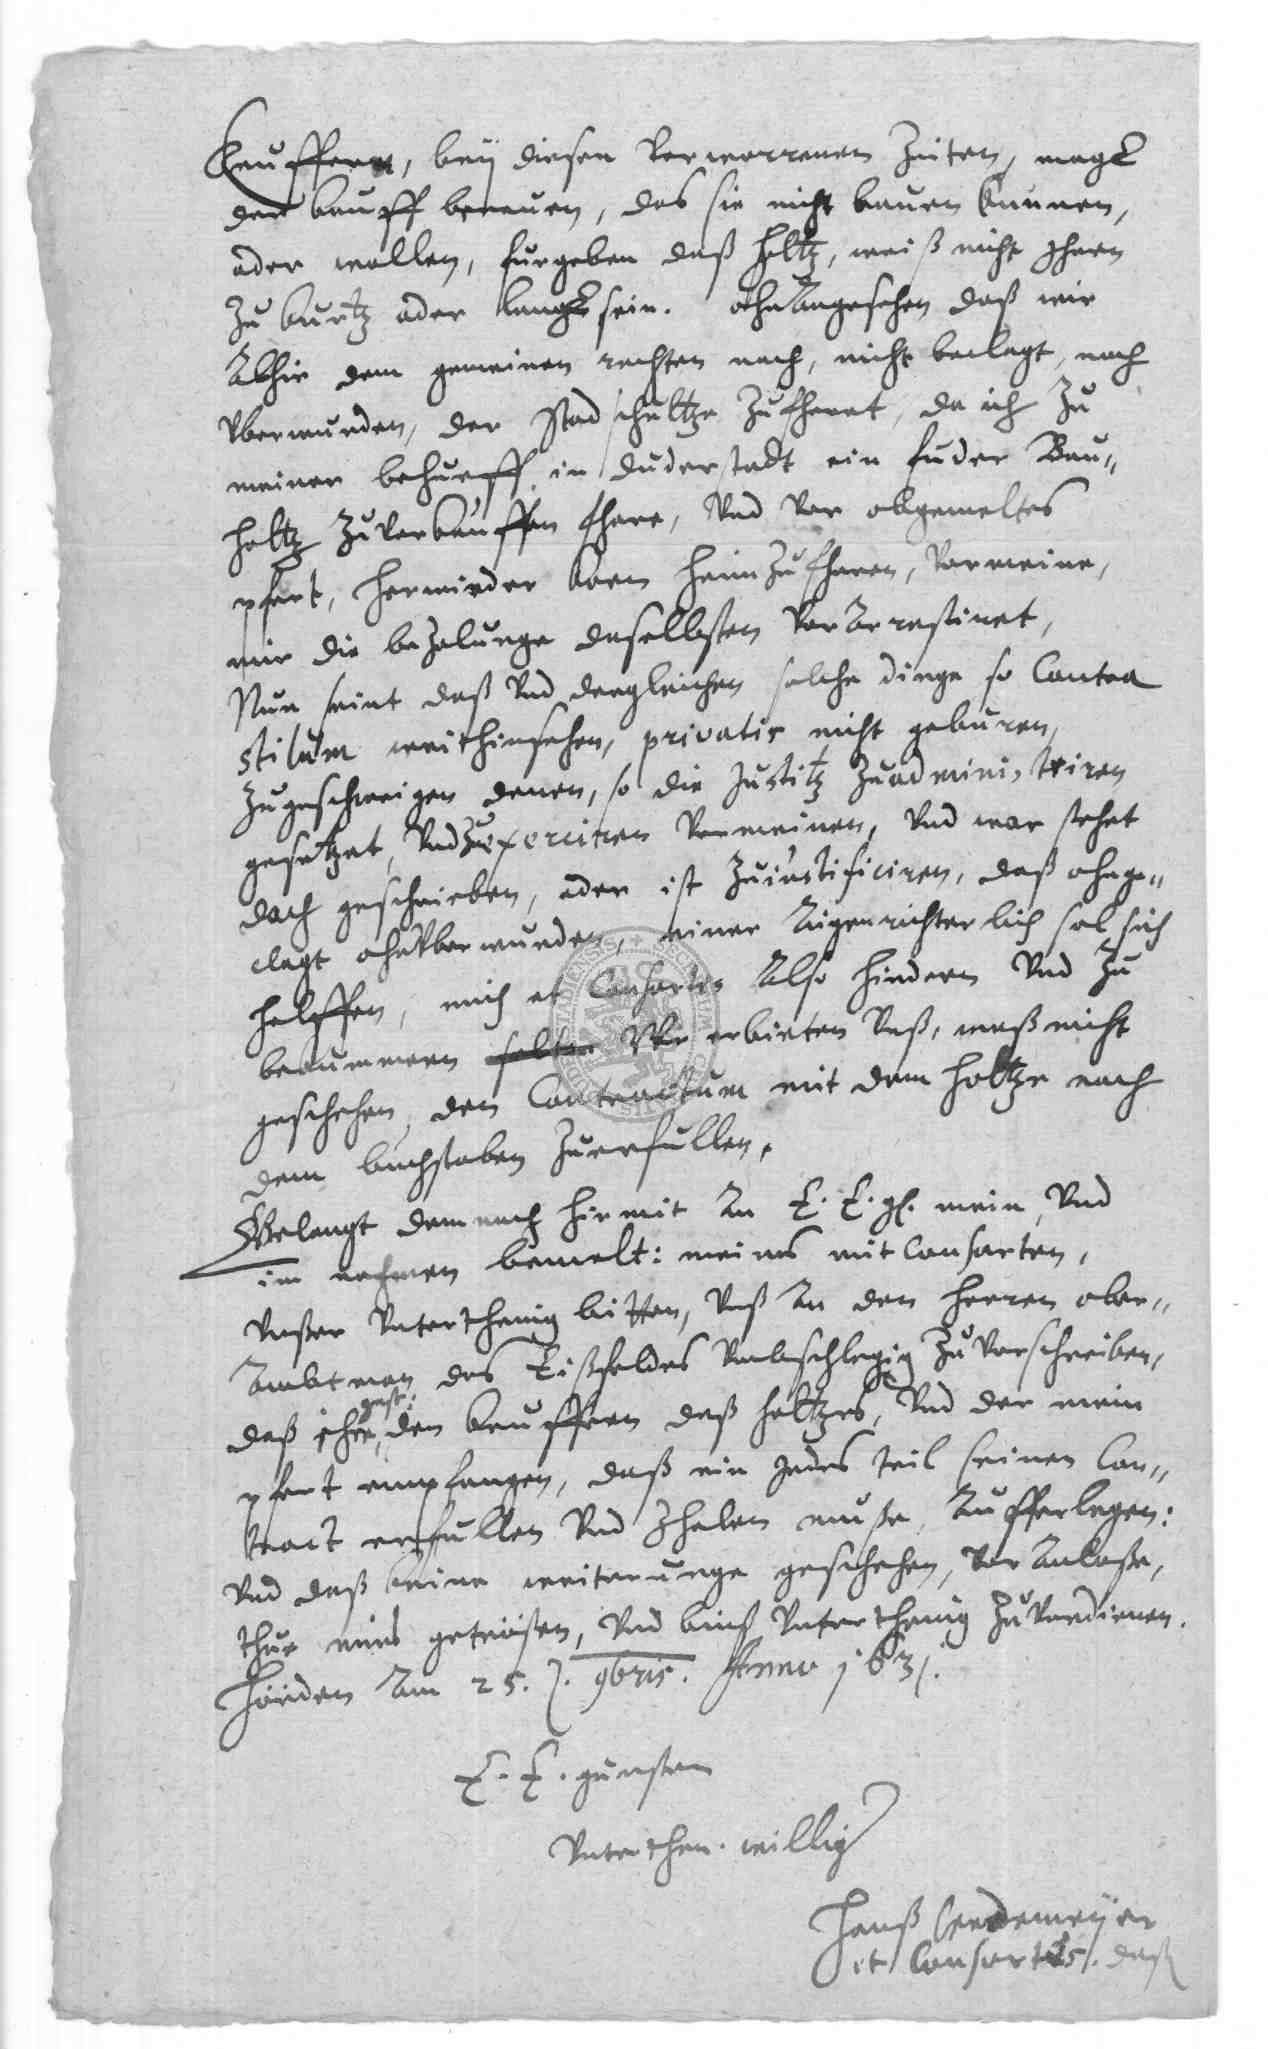 Keuffern, beÿ diesen verworrenen Zeiten, magk
der kauff berauen, das sie nicht bauen kunnen,
oder wollen, furgeben daß holtz, weiß nicht Ihnen
Zu kurtz oder langk sein. ohnAngesehen daß wir
Alhie dem gemeinen rechten nach, nicht beclagt, noch
vberwunden, der Stadschultze Zufheret, da ich Zu
meiner behueff in duderstadt ein fuder Bau=
holtz Zuverkauffen fhare, Vnd vor obgemeltes
pfert, herwieder korn heimZufharen, vermeine,
mir die beZalunge daselbsten verArrestiret,
Nun seint daß vnd dergleichen solche dinge so Contra
stilum weithinsehen, privatis nicht geburen,
Zugeschweigen denen, so die Justitz Zuadministriren
gesetzet, vndZuexerciren vermeinen, Vnd war stehet
doch geschrieben, oder ist Zuiustificiren, daß ohnge=
clagt ohnvberwunden, einer Aigenrichterlich sol sich
helffen, mich et Consortes Also hindern Vnd Zu
bekummern solten Wir erbieten vnß, waß nicht
geschehen, den Contractum mit dem holtze nach
dem buchstaben Zuerfullen.
Gelangt demnach hirmit An E. E. gl. mein, Vnd
im nahmen bemelt: meines mit Consorten,
vnßer vnterthenig bitten, vnß An den herren ober=
Ambtman des Eißfeldes Zuvorschreiben,
daß ihre, gest: den keuffern deß holtzes, Vnd der mein
pfert empfangen, daß ein Jedes teil seinen Con=
tract erfullen Vnd Zhalen muße, Aufferlegen:
Vnd daß keine weiterunge geschehen, verAnlaße,
thue mich getrösten, Vnd binß vnterthenig Zuverdienen.
Hörden Am 25. 9bris. Anno 1631.
E. E. gunsten
vnterthen. willig
Hanß
et Consortes. daß